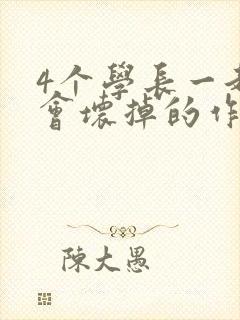 4个學長一起
會壞掉的作
陳大愚